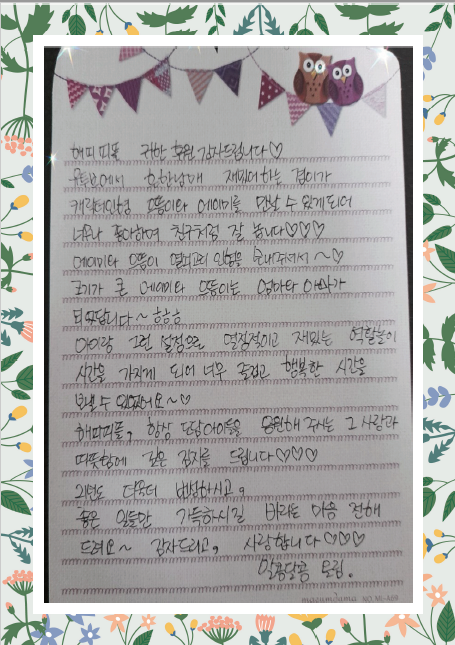 해피피플 귀한 후원 감사드립니다♡
유튜브에서 흔한남매 재밌어하는 겸이가
캐릭터인형 으뜸이와 에이미를 만날 수 있게되어
너무나 좋아하며 친구처럼 잘 놉니다♡♡♡
에이미와 으뜸이 인형을 보내주셔서 ~♡
크기가 큰 에이미와 으뜸이는 엄마와 아빠가
되었답니다~ ㅎㅎㅎ
아이랑 그런 설정으로 열정적이고 재밌는 역할놀이
시간을 가지게 되어 너무 즐겁고 행복한 시간을
보낼 수 있었어요~♡
해피피플, 항상 아이들을 응원해 주시는 그 사랑과
따뜻함에 깊은 감사를 드립니다♡♡♡
더욱더 번창하시고,
좋은 일들만 가득하시길 바라는 마음 전해
드려요~ 감사드리고, 사랑합니다♡♡♡
알콩달콩 드림.
mazumdama NO.